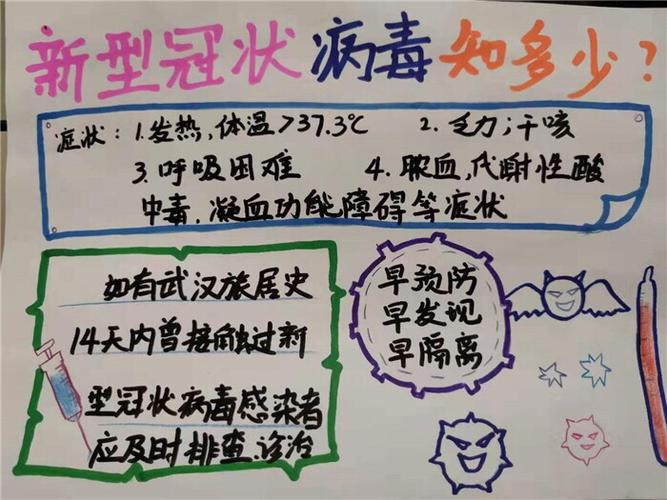 新型冠状病毒知多少?
症状: 1.发热,体温>37.3℃ 2.乏力;干咳
3.呼吸困难 4.脓血,代谢性酸
中毒,凝血功能障碍等症状
如有武汉旅居史
14天内曾接触过新
型冠状病毒感染者
应及时排查、诊治
早预防
早发现
早隔离